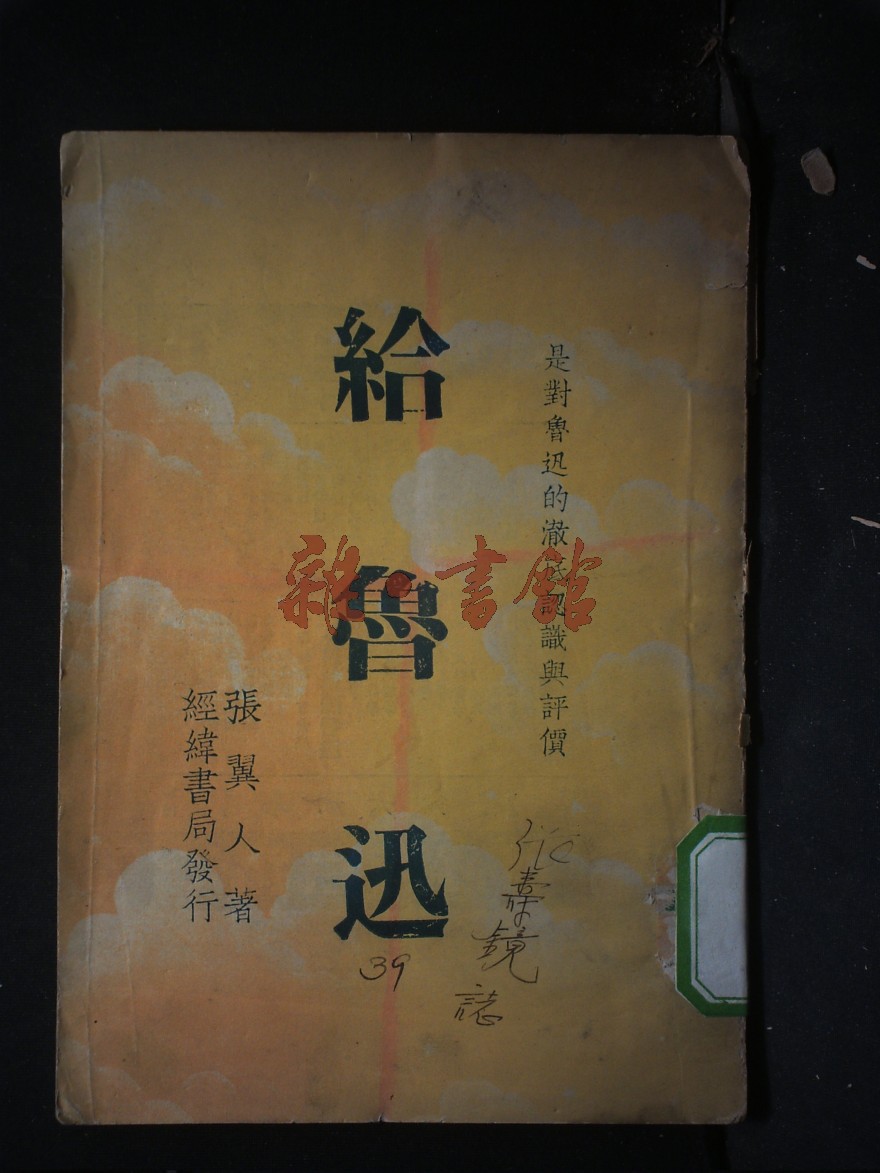 是對魯迅的澈底認識與評價
給魯迅
張翼人著
經緯書局發行
壽鏡
誌
39
雜·書館